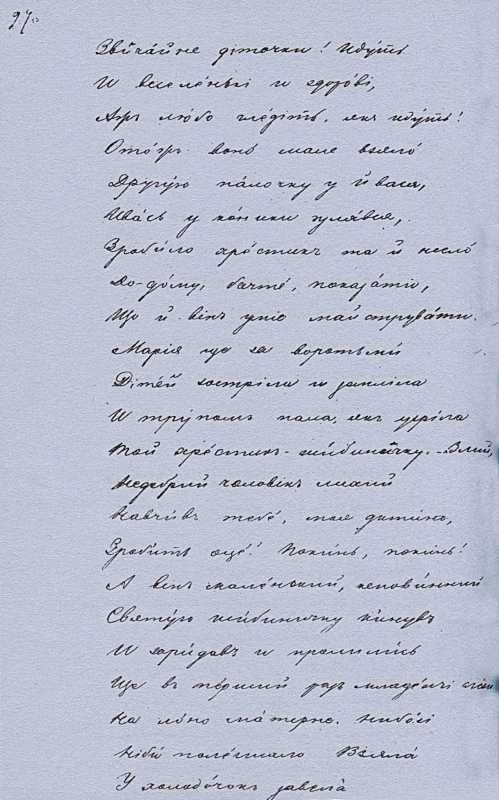 97
Звычайне діточки! Идуть
И веселенькі и здорові,
Ажъ любо глядіть, якъ идуть!
Отожъ воно мале взяло
Другую палочку у Йвася,
Ивась у коники гулявся,
Зробило хрестикъ та й несло
До-дому, бачте, показати,
Що й вінъ уміє майструвати.
Марія ще за воротьми
Дітей зостріла и зомліла
И трупомъ пала, якъ узріла
Той хрестикъ-шибиничку. - Злий,
Недобрий человікъ лихий
Навчивъ тебе, моя дитино,
Зробить оце! Покинь, покинь!
А вінъ маленький, неповинний
Святую шибиничку кинувъ
И заридавъ и пролились
Ще въ перший разъ младенчі слёзи
На лоно матерне. Ниботі
Ніби полегшало Взяла
У холодочокъ завела